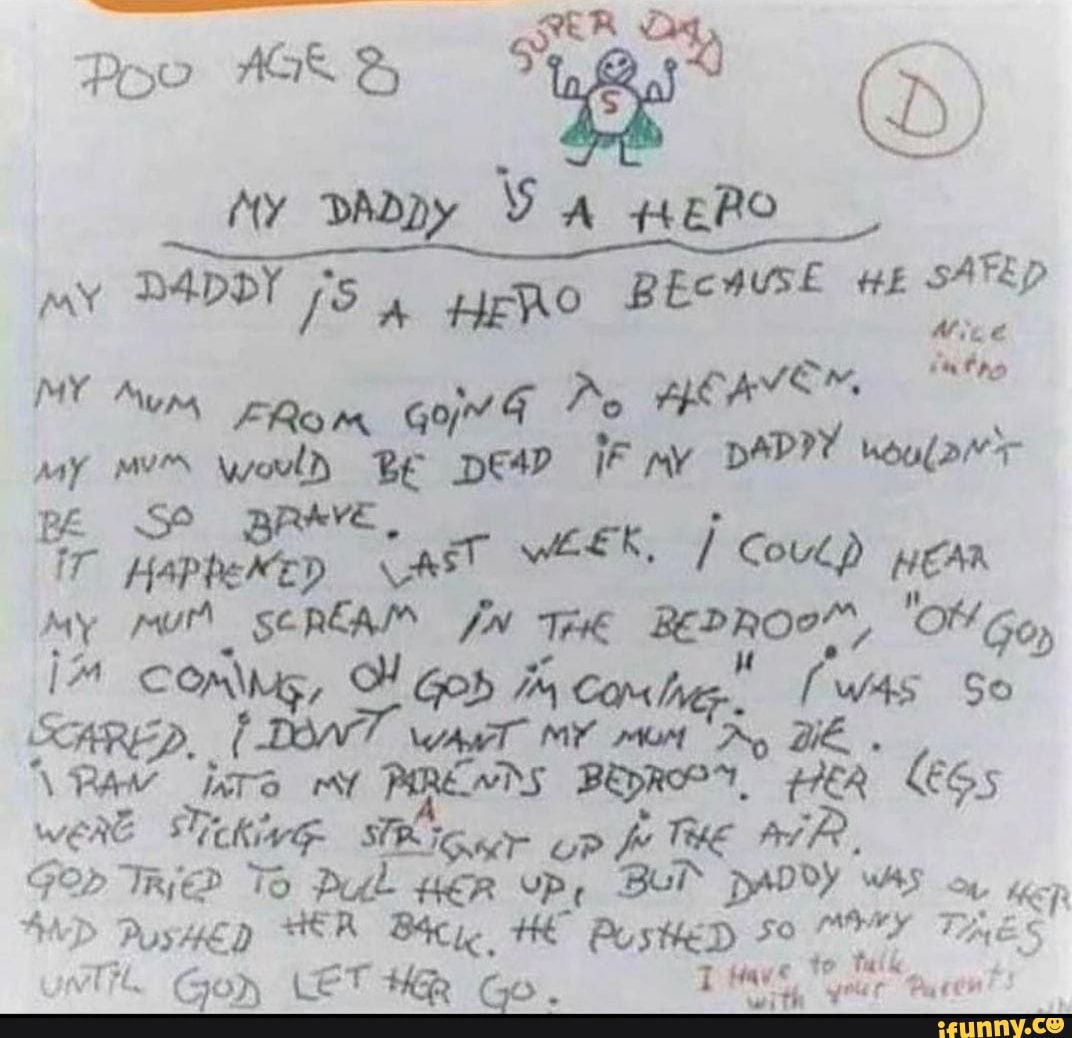 POO AGE 8
SUPER DAD
S
D
MY DADDY iS A HERO
MY DADDY iS A HERO BECAUSE HE SAFED
Nice
intro
MY MUM FROM GOiNG TO HEAVEN.
MY MUM WOULD BE DEAD iF MY DADDY WOULDN'T
BE SO BRAVE.
iT HAPPENED LAST WEEK. i COULD HEAR
MY MUM SCREAM iN THE BEDROOM, "OH GOD
i'M COMiNG, OH GOD i'M COMiNG." i WAS SO
SCARED. i DON'T WANT MY MUM TO DiE.
i RAN iNTO MY PARENTS BEDROOM. HER LEGS
A
WERE STiCKiNG STRiGHT UP iN THE AiR.
GOD TRiED TO PULL HER UP, BUT DADDY WAS ON HER
AND PUSHED HER BACK. HE PUSHED SO MANY TiMES
UNTiL GOD LET HER GO.
I Have to talk
with your Parents
ifunny.co